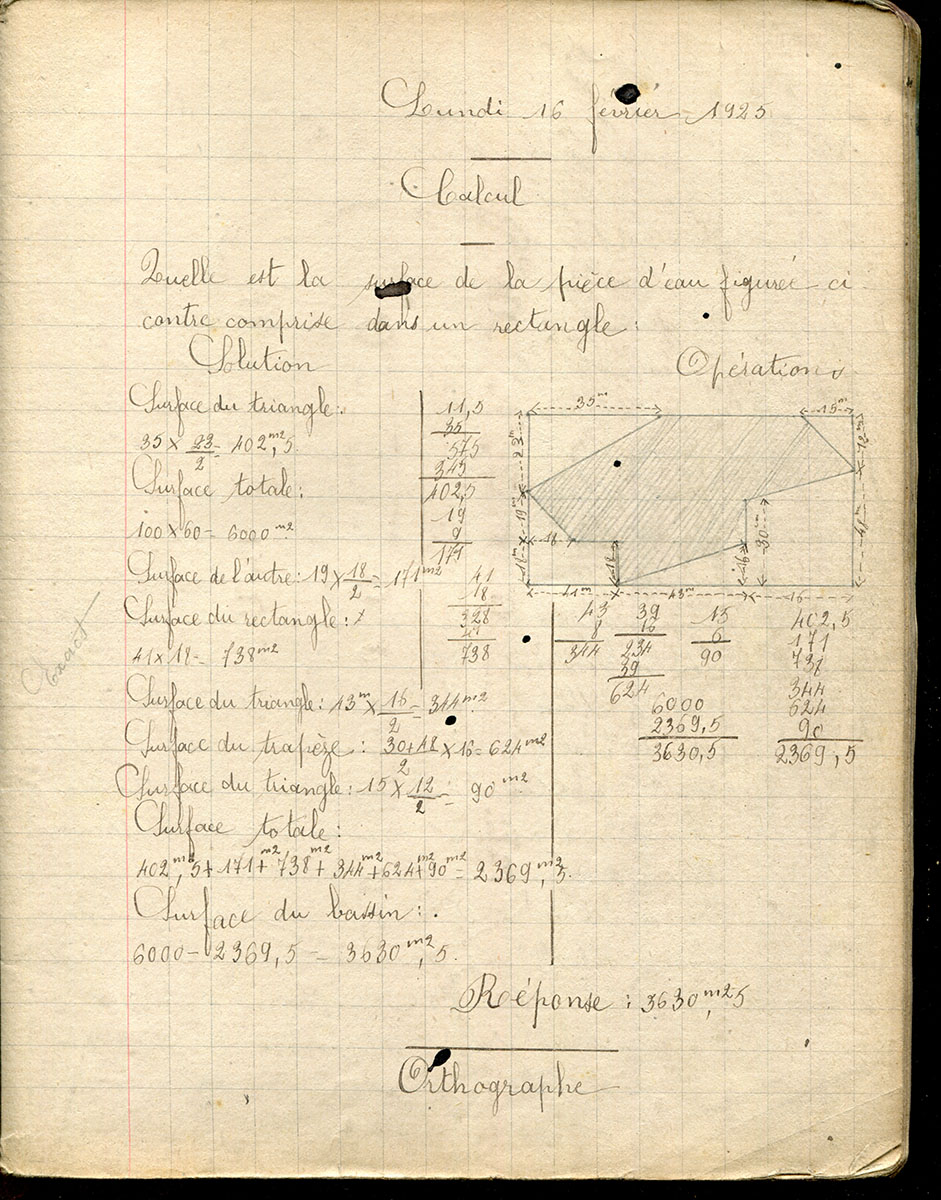 Lundi 16 février 1925
Calcul
Quelle est la surface de la pièce d'eau figurée ci
contre comprise dans un rectangle :
Solution
Opérations
Surface du triangle :
35 × 23/2 = 402m2,5
Surface totale :
100 × 60 = 6000 m2
Surface de l'autre : 19 × 18/2 = 171m2
Surface du rectangle :
41 × 18 = 738m2
Surface du triangle : 43m × 16/2 = 344m2
Surface du trapèze : 30+48/2 × 16 = 624m2
Surface du triangle : 15 × 12/2 = 90m2
Surface totale :
402m2,5 + 171m2 + 738m2 + 344m2 + 624m2 + 90m2 = 2369m2,5.
Surface du bassin :
6000 - 2369,5 = 3630m2,5.
11,5
35
575
345
402,5
19
9
171
41
18
328
41
738
35m
15m
23m
12m
19m
18
30m
48m
18m
18
16
41m
43m
16
43
8
344
39
16
234
39
624
15
6
90
402,5
171
738
344
624
90
2369,5
6000
2369,5
3630,5
Exact
Réponse : 3630m2,5
Orthographe